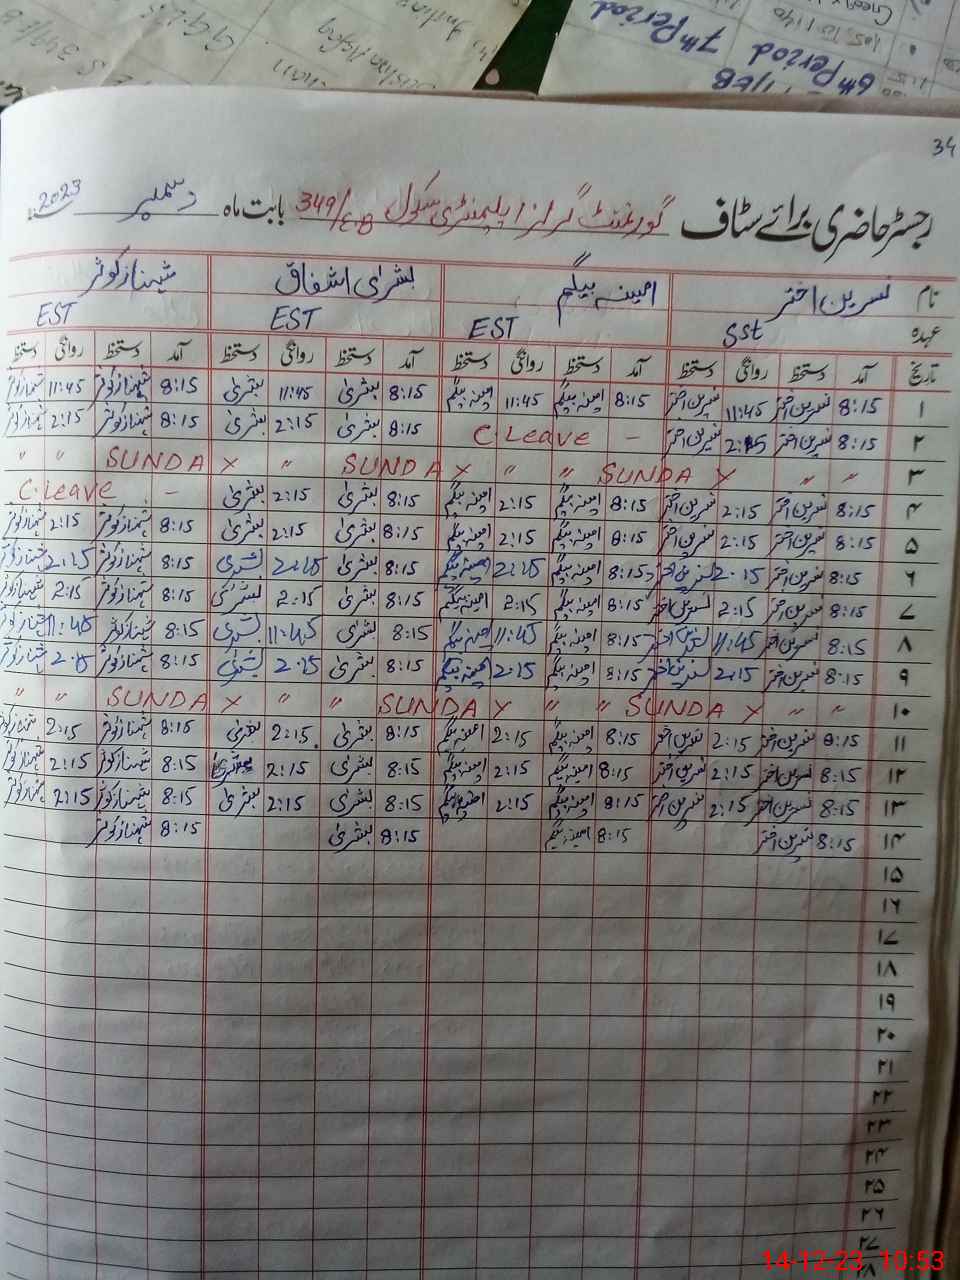 6th Period
7th Period
34
رجسٹر حاضری برائے سٹاف گورنمنٹ گرلز ایلیمنٹری سکول 349/E.B بابت ماہ دسمبر 2023
نام نسرین اختر امینہ بیگم بشریٰ اشفاق شہناز کوثر
عہدہ SST EST EST EST
تاریخ آمد دستخط روانگی دستخط آمد دستخط روانگی دستخط آمد دستخط روانگی دستخط آمد دستخط روانگی دستخط
۱ 8:15 نسرین اختر 11:45 نسرین اختر 8:15 امینہ بیگم 11:45 امینہ بیگم 8:15 بشریٰ 11:45 بشریٰ 8:15 شہناز کوثر 11:45 شہناز کوثر
۲ 8:15 نسرین اختر 2:15 نسرین اختر – C Leave 8:15 بشریٰ 2:15 بشریٰ 8:15 شہناز کوثر 2:15 شہناز کوثر
۳ " " SUNDAY " " SUNDAY " SUNDAY " "
۴ 8:15 نسرین اختر 2:15 نسرین اختر 8:15 امینہ بیگم 2:15 امینہ بیگم 8:15 بشریٰ 2:15 بشریٰ – C. Leave
۵ 8:15 نسرین اختر 2:15 نسرین اختر 8:15 امینہ بیگم 2:15 امینہ بیگم 8:15 بشریٰ 2:15 بشریٰ 8:15 شہناز کوثر 2:15 شہناز کوثر
۶ 8:15 نسرین اختر 2:15 نسرین اختر 8:15 امینہ بیگم 2:15 امینہ بیگم 8:15 بشریٰ 2:15 بشریٰ 8:15 شہناز کوثر 2:15 شہناز کوثر
۷ 8:15 نسرین اختر 2:15 نسرین اختر 8:15 امینہ بیگم 2:15 امینہ بیگم 8:15 بشریٰ 2:15 بشریٰ 8:15 شہناز کوثر 2:15 شہناز کوثر
۸ 8:15 نسرین اختر 11:45 نسرین اختر 8:15 امینہ بیگم 11:45 امینہ بیگم 8:15 بشریٰ 11:45 بشریٰ 8:15 شہناز کوثر 11:45 شہناز کوثر
۹ 8:15 نسرین اختر 2:15 نسرین اختر 8:15 امینہ بیگم 2:15 امینہ بیگم 8:15 بشریٰ 2:15 بشریٰ 8:15 شہناز کوثر 2:15 شہناز کوثر
۱۰ " " SUNDAY " " SUNDAY " " SUNDAY " "
۱۱ 8:15 نسرین اختر 2:15 نسرین اختر 8:15 امینہ بیگم 2:15 امینہ بیگم 8:15 بشریٰ 2:15 بشریٰ 8:15 شہناز کوثر 2:15 شہناز کوثر
۱۲ 8:15 نسرین اختر 2:15 نسرین اختر 8:15 امینہ بیگم 2:15 امینہ بیگم 8:15 بشریٰ 2:15 بشریٰ 8:15 شہناز کوثر 2:15 شہناز کوثر
۱۳ 8:15 نسرین اختر 2:15 نسرین اختر 8:15 امینہ بیگم 2:15 امینہ بیگم 8:15 بشریٰ 2:15 بشریٰ 8:15 شہناز کوثر 2:15 شہناز کوثر
۱۴ 8:15 نسرین اختر 8:15 امینہ بیگم 8:15 بشریٰ 8:15 شہناز کوثر
۱۵
۱۶
۱۷
۱۸
۱۹
۲۰
۲۱
۲۲
۲۳
۲۴
۲۵
۲۶
۲۷
14-12-23 10:53